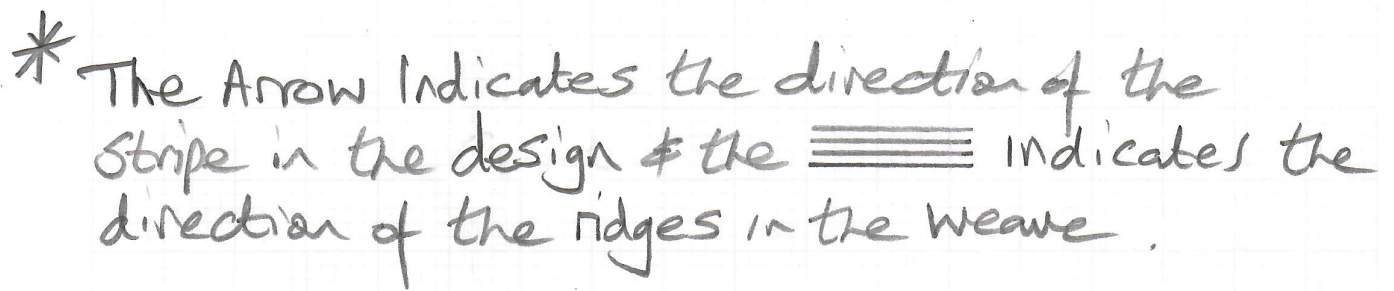 * The Arrow Indicates the direction of the
stripe in the design & the indicates the
direction of the ridges in the weave.